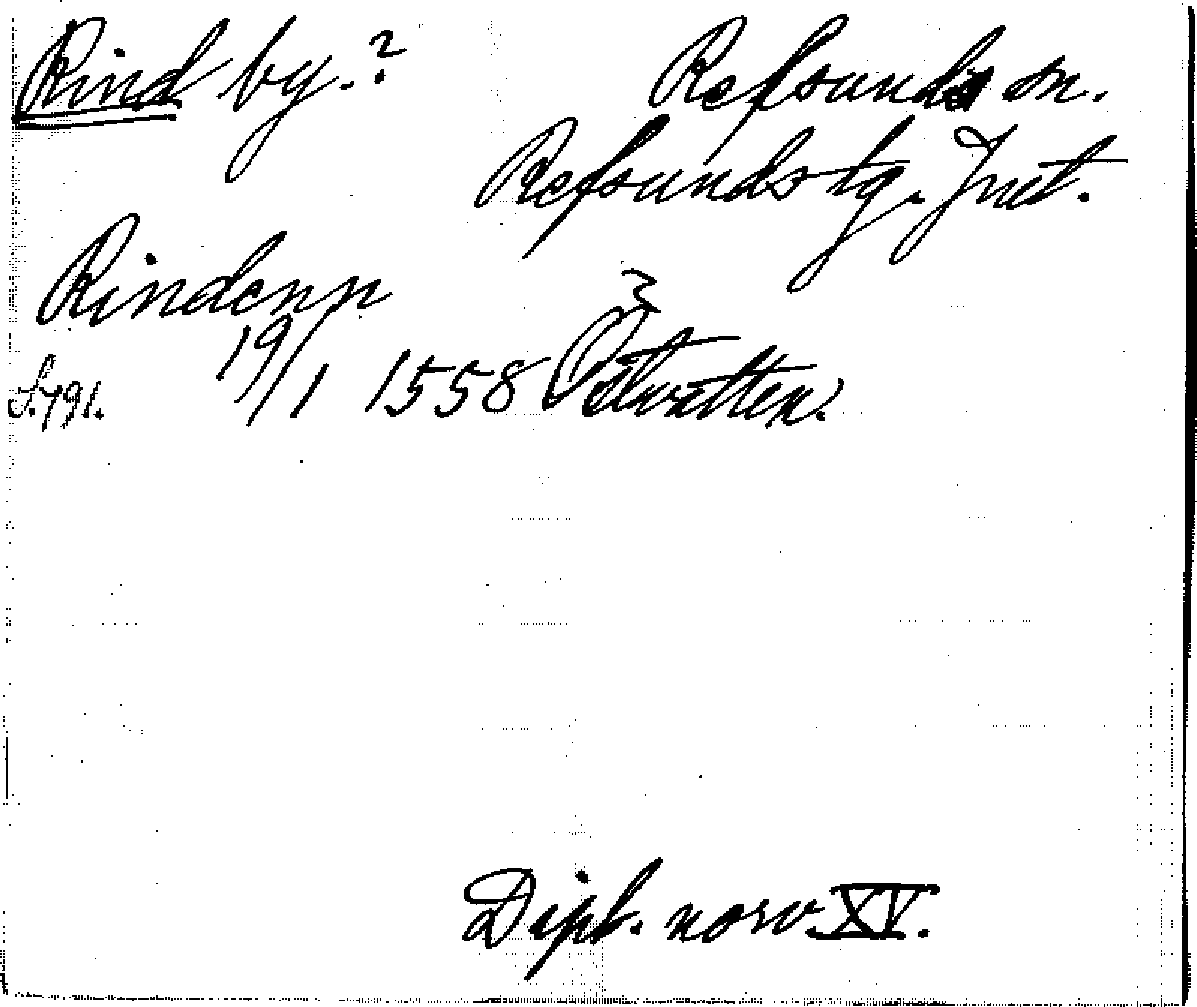 Rind by.? Refsunds sn.
Refsunds tg. Jmt.
Rindenn
S. 791. 19/1 1558 Östvatten.
Dipl. norv. XV.